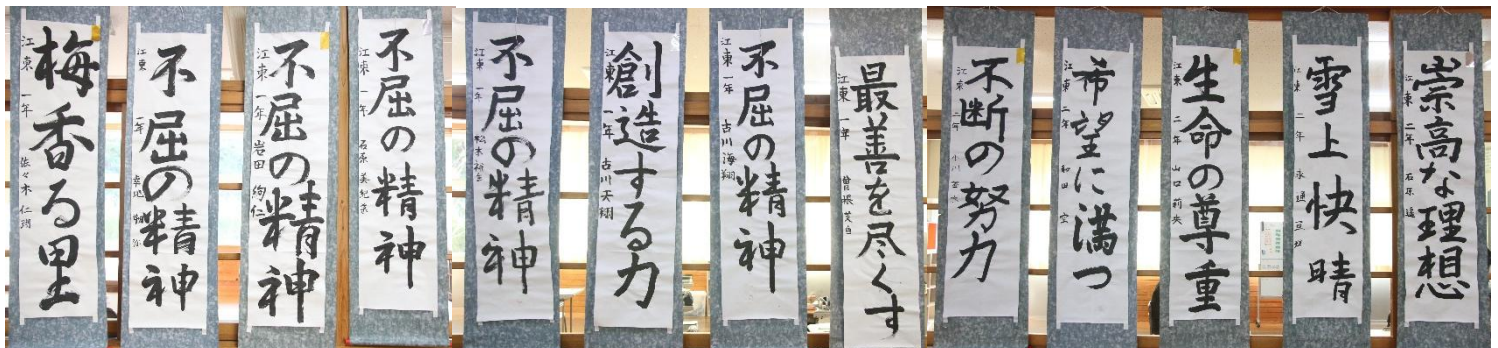 梅香る里
江東 一年 佐々木 仁
不屈の精神
江東 一年
不屈の精神
江東 一年 岩田 絢仁
不屈の精神
江東 一年 石原 美紀
不屈の精神
江東 一年 松本
創造する力
江東 一年 古川 天翔
不屈の精神
江東 一年 古川 海翔
最善を尽くす
江東 一年 曽根
不断の努力
江東 二年 小川
希望に満つ
江東 二年 和田 空
生命の尊重
江東 二年 山口 莉央
雪上快晴
江東 二年
崇高な理想
江東 二年 石原